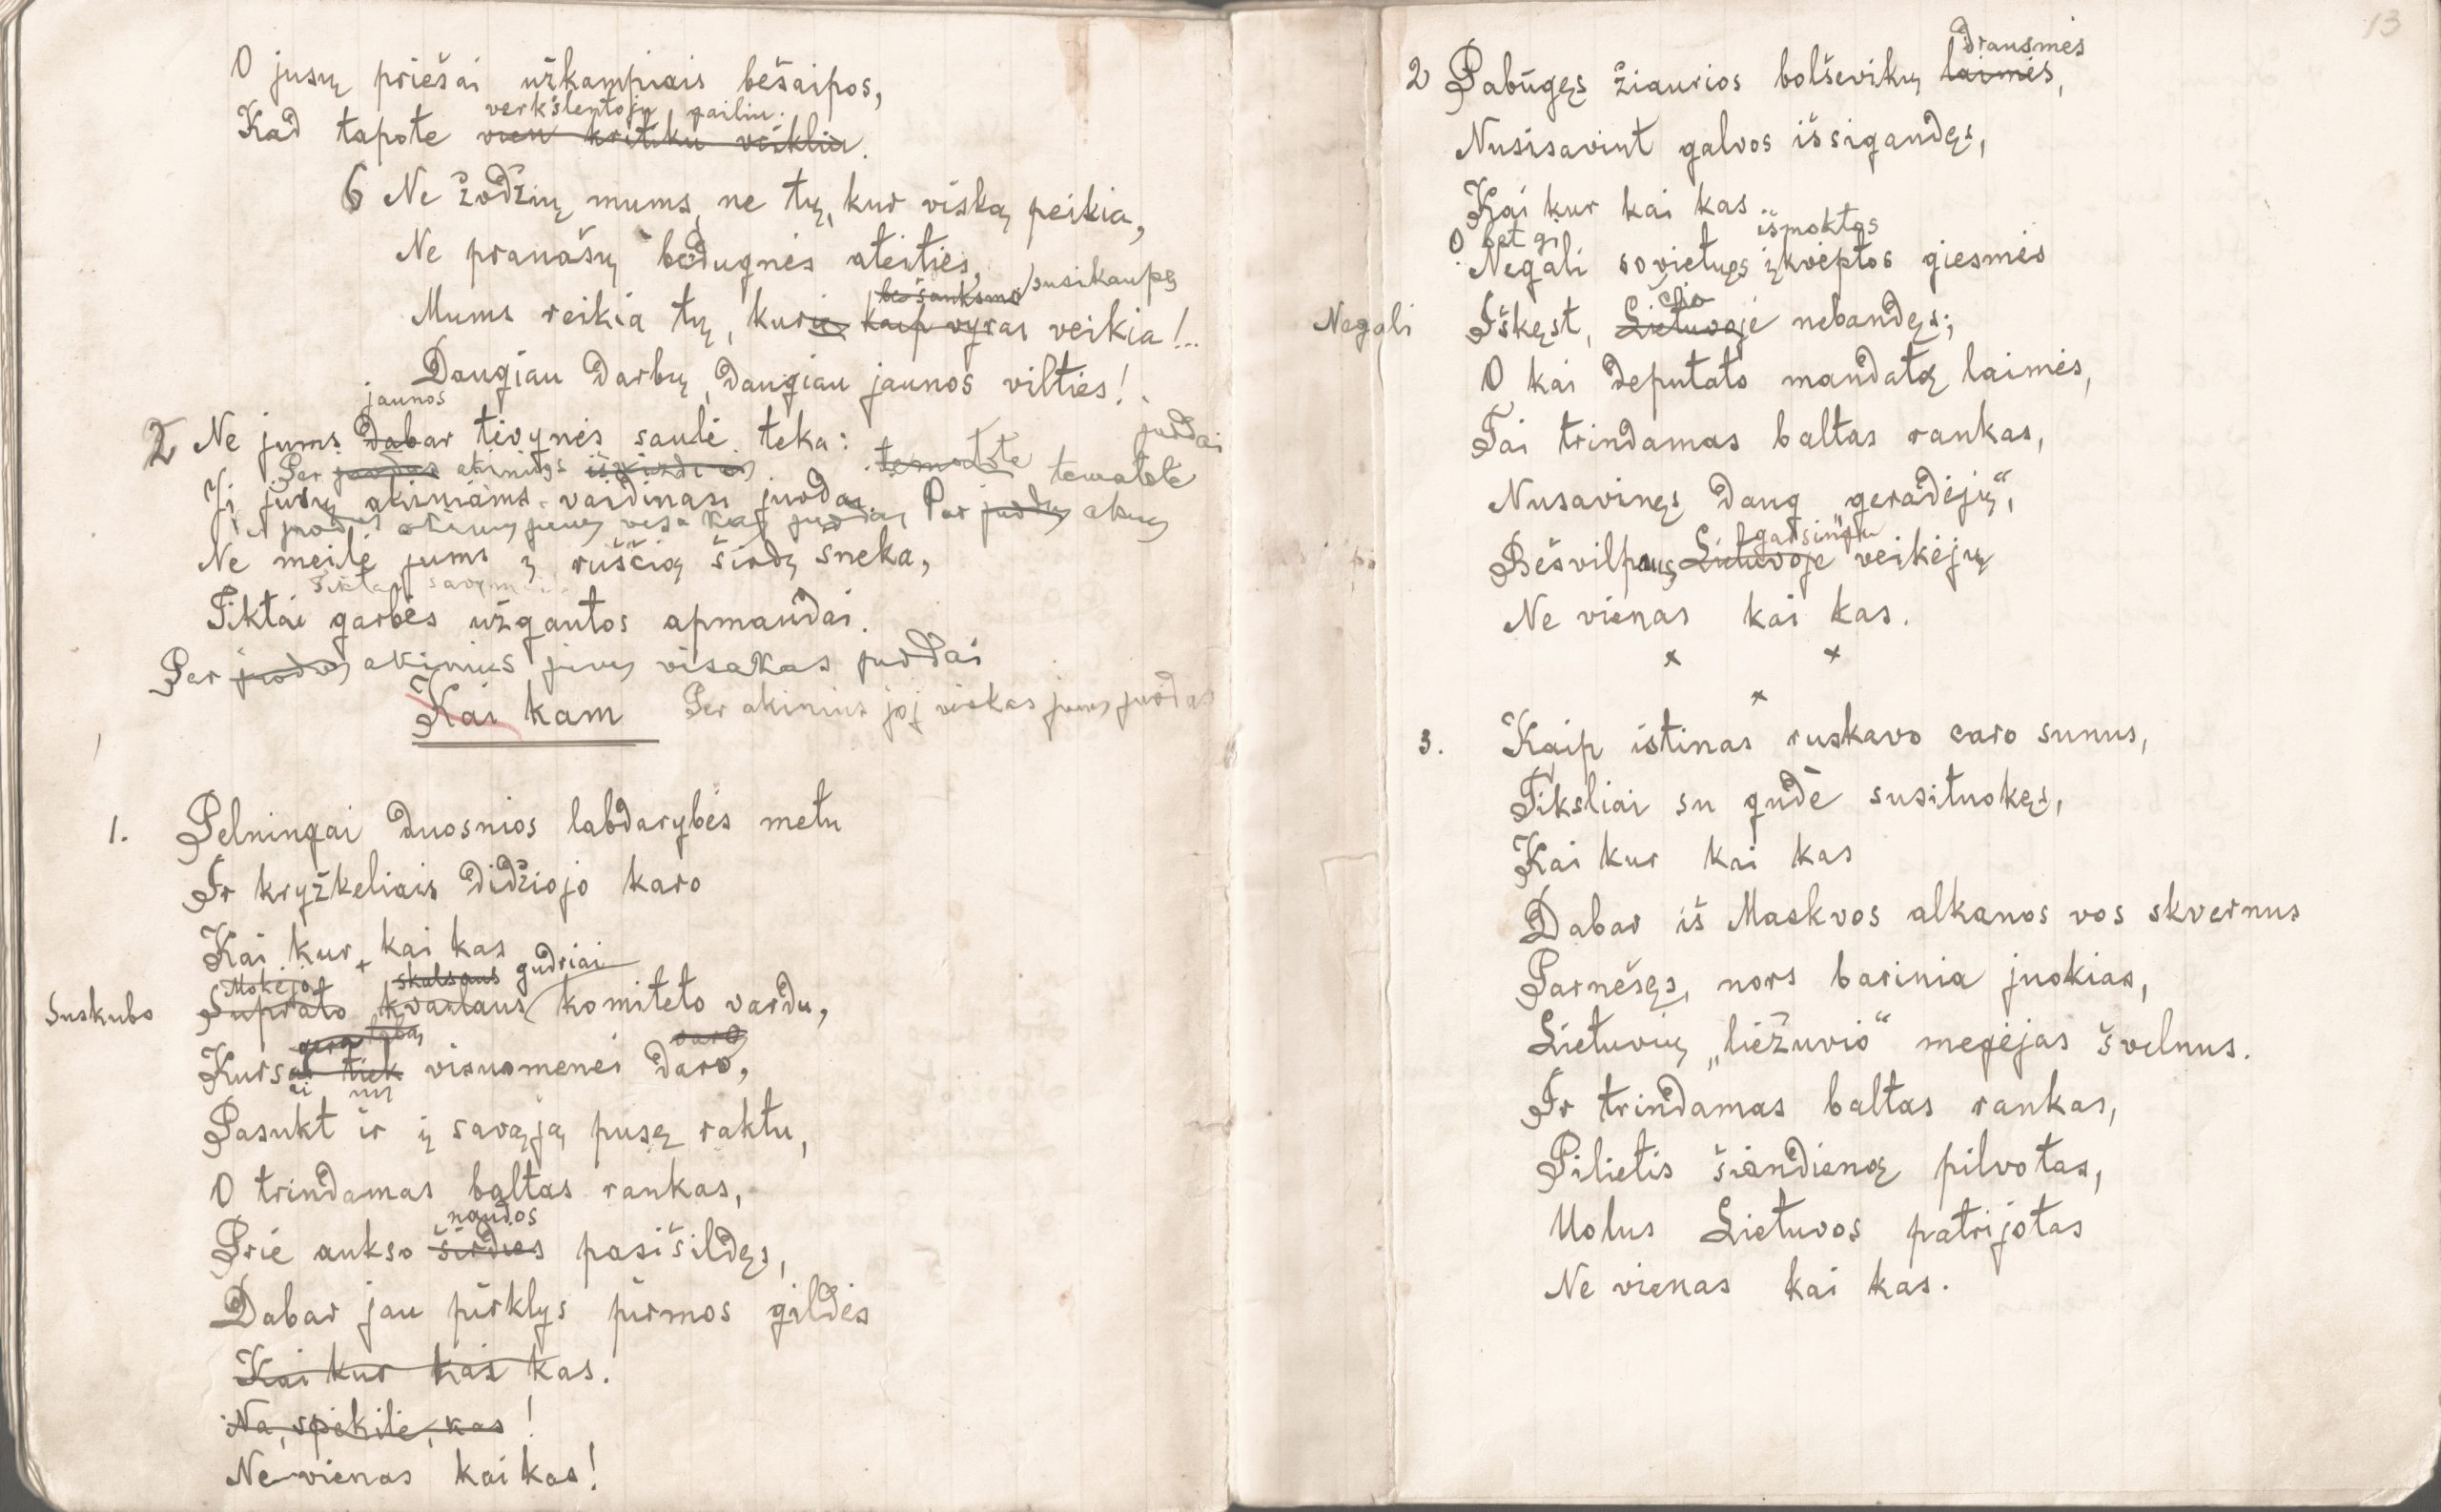 O jusų priešai užkampiais bešaipos,
verkšlentojų pailiu.
Kad tapote vien kritiku veikliu.
6 Ne žodžių mums, ne tų, kur viską peikia,
Ne pranašų bedugnės ateities,
be šauksmo susikaupę
Mums reikia tų, kurie kaip vyras veikia!..
Daugiau darbų, daugiau jaunos vilties!
jaunos
2 Ne jums dabar tėvynės saulė teka:
juodai
Per juodus akinius tematote tematote
Ji jusų akiniams vaidinasi juodai. Per juodus
Ne meilė jums į ruščią širdį šneka,
Tiktai
Tiktai garbės užgautos apmaudai.
Per juodus akinius jums visakas juodai
Kai kam Per akinius joj viskas jums juodas
1. Pelningai duosnios labdarybės metu
Ir kryžkeliais didžiojo karo
Kai kur kai kas
Mokėjo skalsaus gudriai
Suskubo Suprato kvarlaus komiteto vardu,
gera labą varo
Kursai tiek visuomenei daro,
ai
Pasukt ir į savąją pusę raktu,
O trindamas baltas rankas,
naudos
Prie aukso širdies pasišildęs,
Dabar jau pirklys pirmos gildės
Kai kur kai kas.
Na, spėkite, kas!
Ne vienas kai kas!
13
drausmės
2 Pabūgęs žiaurios bolševikų laimės,
Nusisavint galvos išsigandęs,
Kai kur kai kas
O bet gi išmoktos
Negali sovietuęs įkvėptos giesmės
čia
Negali Iškęst, Lietuvoje nebandęs;
O kai deputato mandatą laimės,
Tai trindamas baltas rankas,
Nusavinęs daug „geradėjų“,
garsintu
Bešvilpaus Lietuvoje veikėjų
Ne vienas kai kas.
x x
x
3. Kaip istinas ruskavo caro sunus,
Tiksliai su gudė susituokęs,
Kai kur kai kas
Dabar iš Maskvos alkanos vos skvernus
Parnešęs, nors barinia juokias,
Lietuvių „liežuvio“ megėjas švelnus.
Ir trindamas baltas rankas,
Pilietis šiandieną pilvotas,
Uolus Lietuvos patrijotas
Ne vienas kai kas.